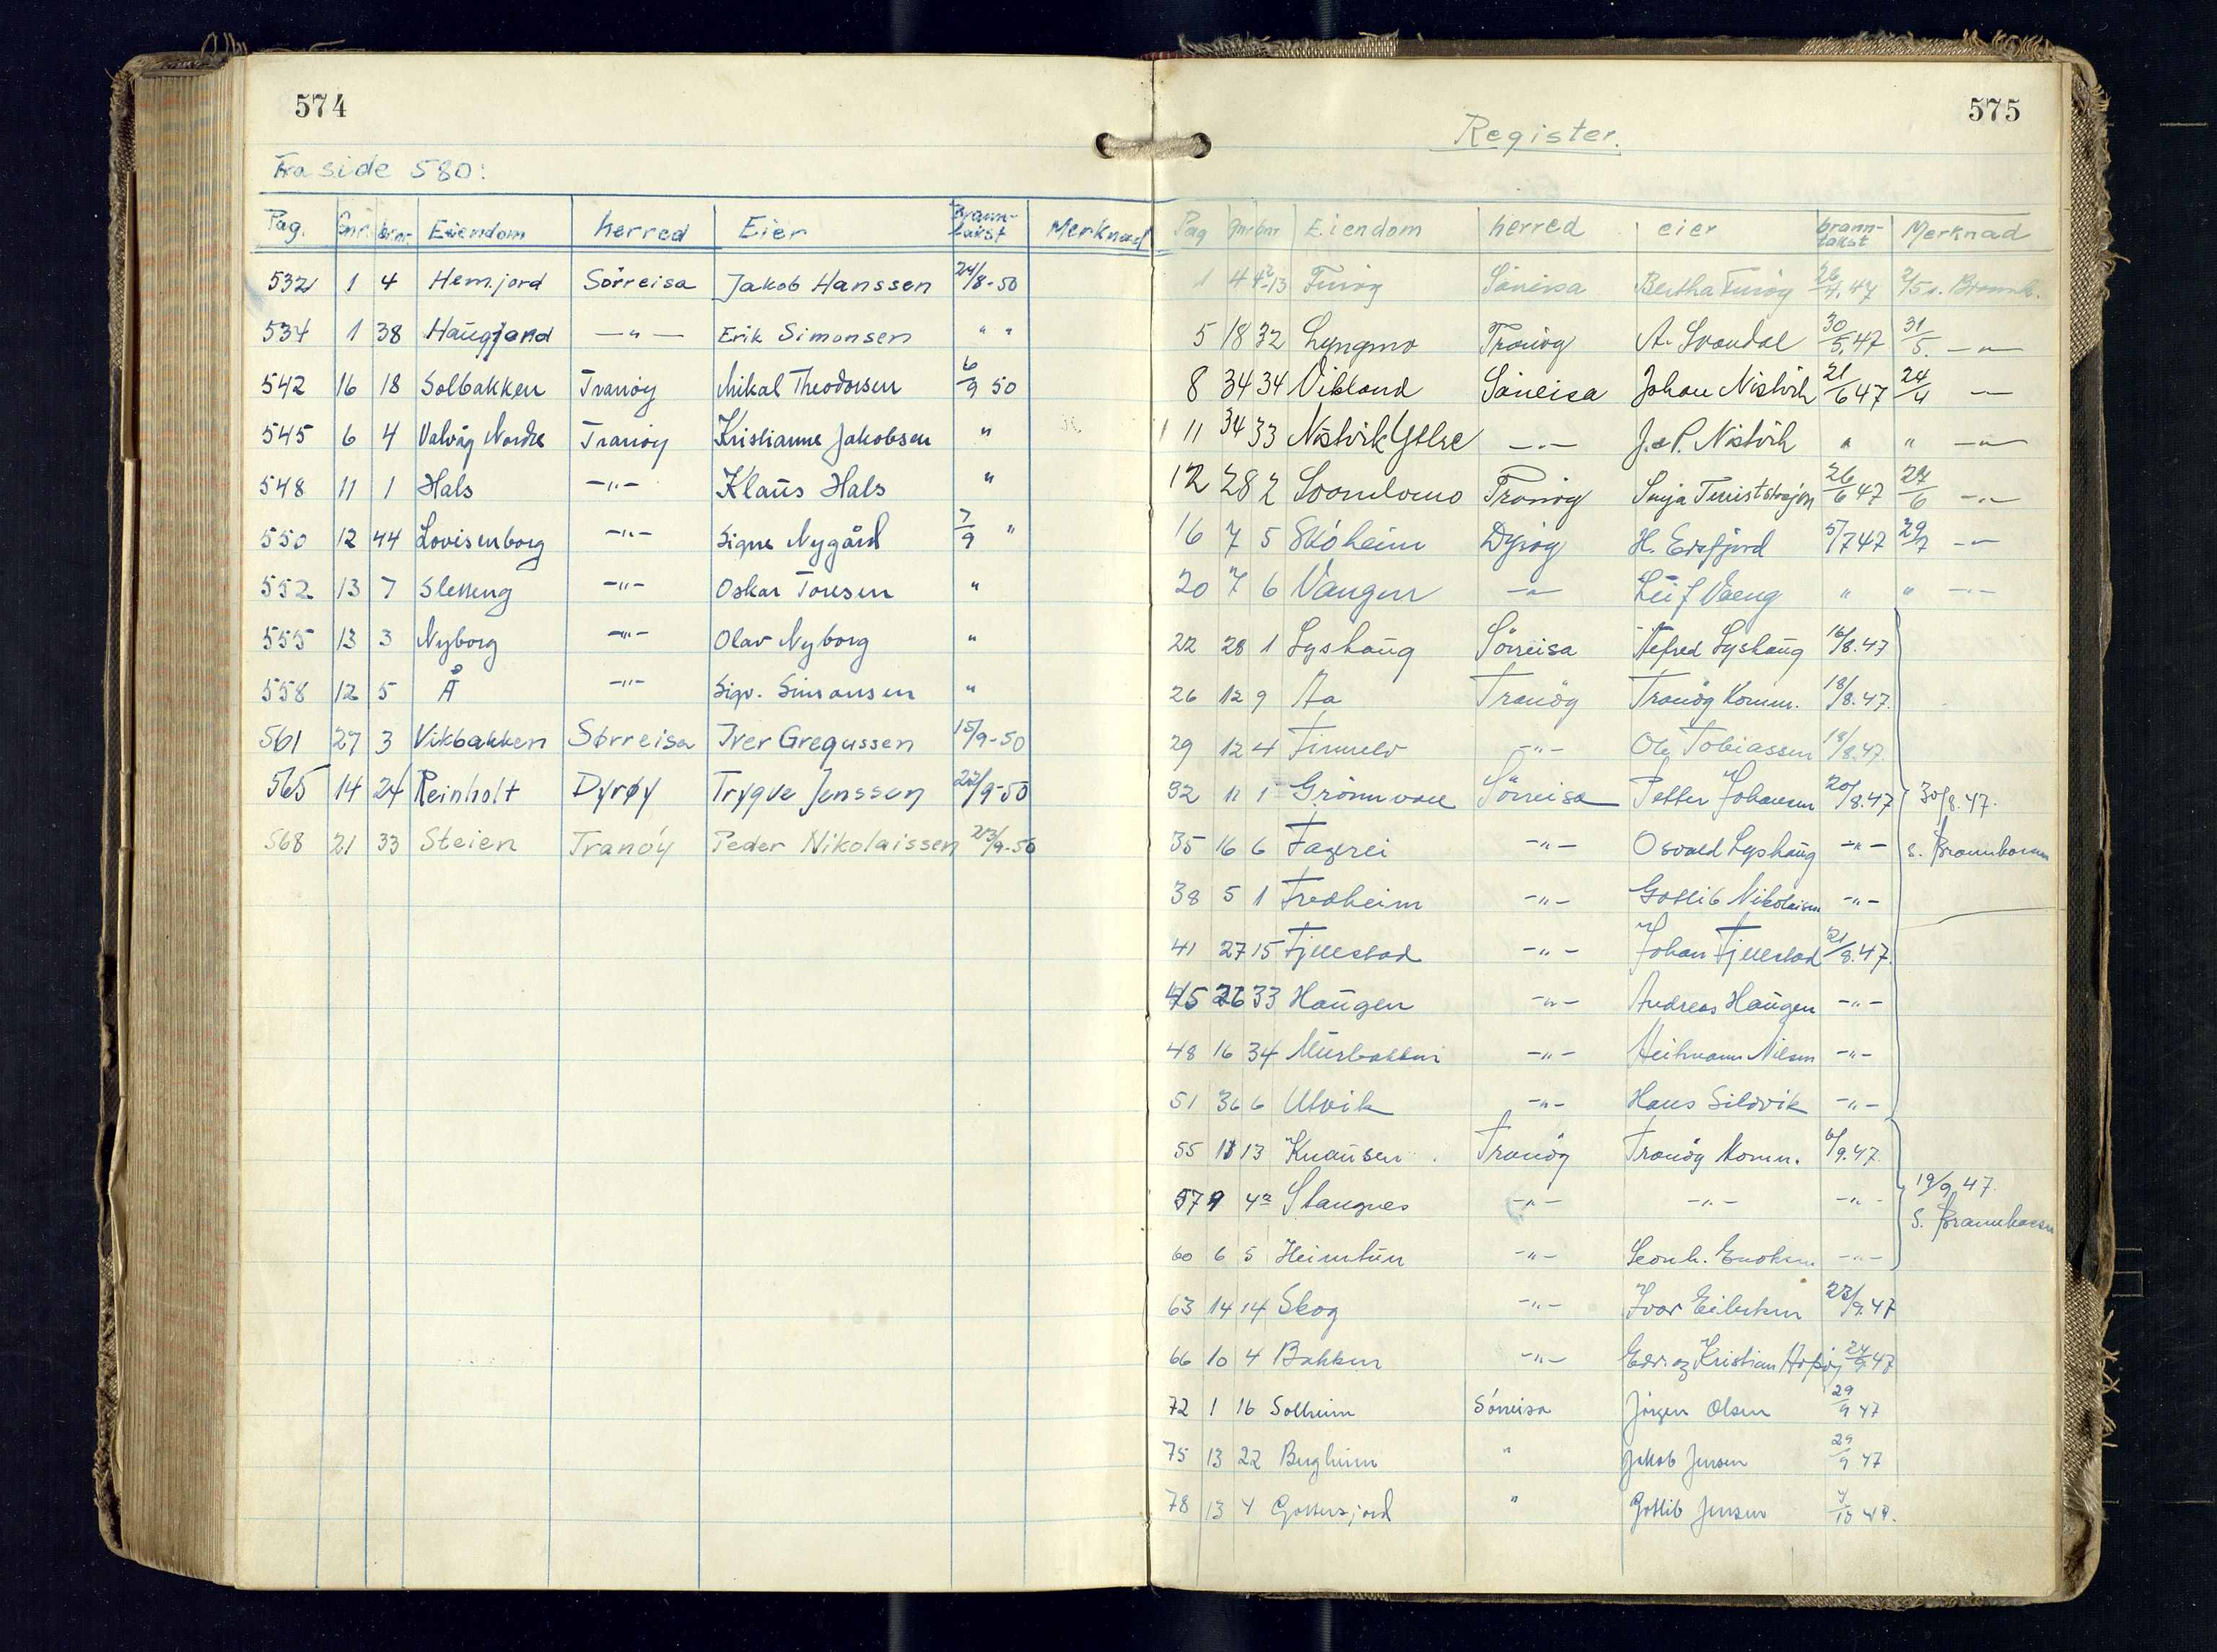 574
Fra side 580:
Pag. Gnr. bnr. Eiendom herred Eier Brann-takst Merknad
532 1 4 Hemjord Sörreisa Jakob Hanssen 24/8-50
534 1 38 Haugland —"— Erik Simonsen " "
542 16 18 Solbakken Tranöy Mikal Theodorsen 6/9 50
545 6 4 Valvåg Nordre Tranöy Kristianne Jakobsen "
548 11 1 Hals —"— Klaus Hals "
550 12 44 Lovisenborg —"— Signe Nygård 7/9 "
552 13 7 Sletteng —"— Oskar Toresen "
555 13 3 Nyborg —"— Olav Nyborg "
558 12 5 Å —"— Sigv. Simonsen "
561 27 3 Vikbakken Sørreisa Iver Gregussen 15/9-50
565 14 24 Reinholt Dyrøy Trygve Jenssen 22/9-50
568 21 33 Steien Tranöy Peder Nikolaissen 23/9-50
575
Register.
Pag Gnr bnr Eiendom herred eier brann-takst Merknad
1 4 Sörreisa Bertha 26/4.47 2/5 s. Brannk.
5 18 32 Lyngmo Tranöy A. Svandal 30/5.47 31/5. —"—
8 34 34 Vikland Sörreisa Johan Nistvik 21/6 47 24/6 —"—
11 34 33 Nistvik Ytre —"— J. & P. Nistvik " " —"—
12 28 2 Svandomo Tranöy Senja Turiststasjon 26/6 47 27/6 —"—
16 7 5 Skóheim Dyröy H. Espfjord 5/7 47 29/7 —"—
20 7 6 Vangen —"— Leif Vaeng " " —"—
22 28 1 Lyshaug Sörreisa Alfred Lyshaug 16/8.47
26 12 9 Aa Tranöy Tranöy Komm. 18/8.47.
29 12 4 Finnelv —"— Ole Tobiassen 18/8.47.
32 11 1 Grönnvoll Sörreisa Petter Johansen 20/8.47 30/8.47.
35 16 6 Fagerli —"— Osvald Lyshaug —"— s. Brannkassen
38 5 1 Fredheim —"— Gotlib Nikolaisen —"—
41 27 15 Fjellstad —"— Johan Fjellstad 21/8.47.
45 26 33 Haugen —"— Andreas Haugen —"—
48 16 34 Murbakken —"— Heitmann Nilsen —"—
51 36 6 Utvik —"— Hans Sildvik —"—
55 11 13 Knausen Tranöy Tranöy Komm. 6/9.47.
57 9 42 Stangnes —"— —"— —"— 19/9 47.
s. Brannkassen
60 6 5 Heimtun —"— Leonh. Enoksen —"—
63 14 14 Skog —"— Ivar Eilertsen 23/9.47
66 10 4 Bakken —"— Edv. og Kristian 24/9 47
72 1 16 Solheim Sörreisa Jörgen Olsen 29/9 47
75 13 22 Bergheim " Jakob Jensen 29/9 47
78 13 4 Gottersjord " Gotlib Jensen